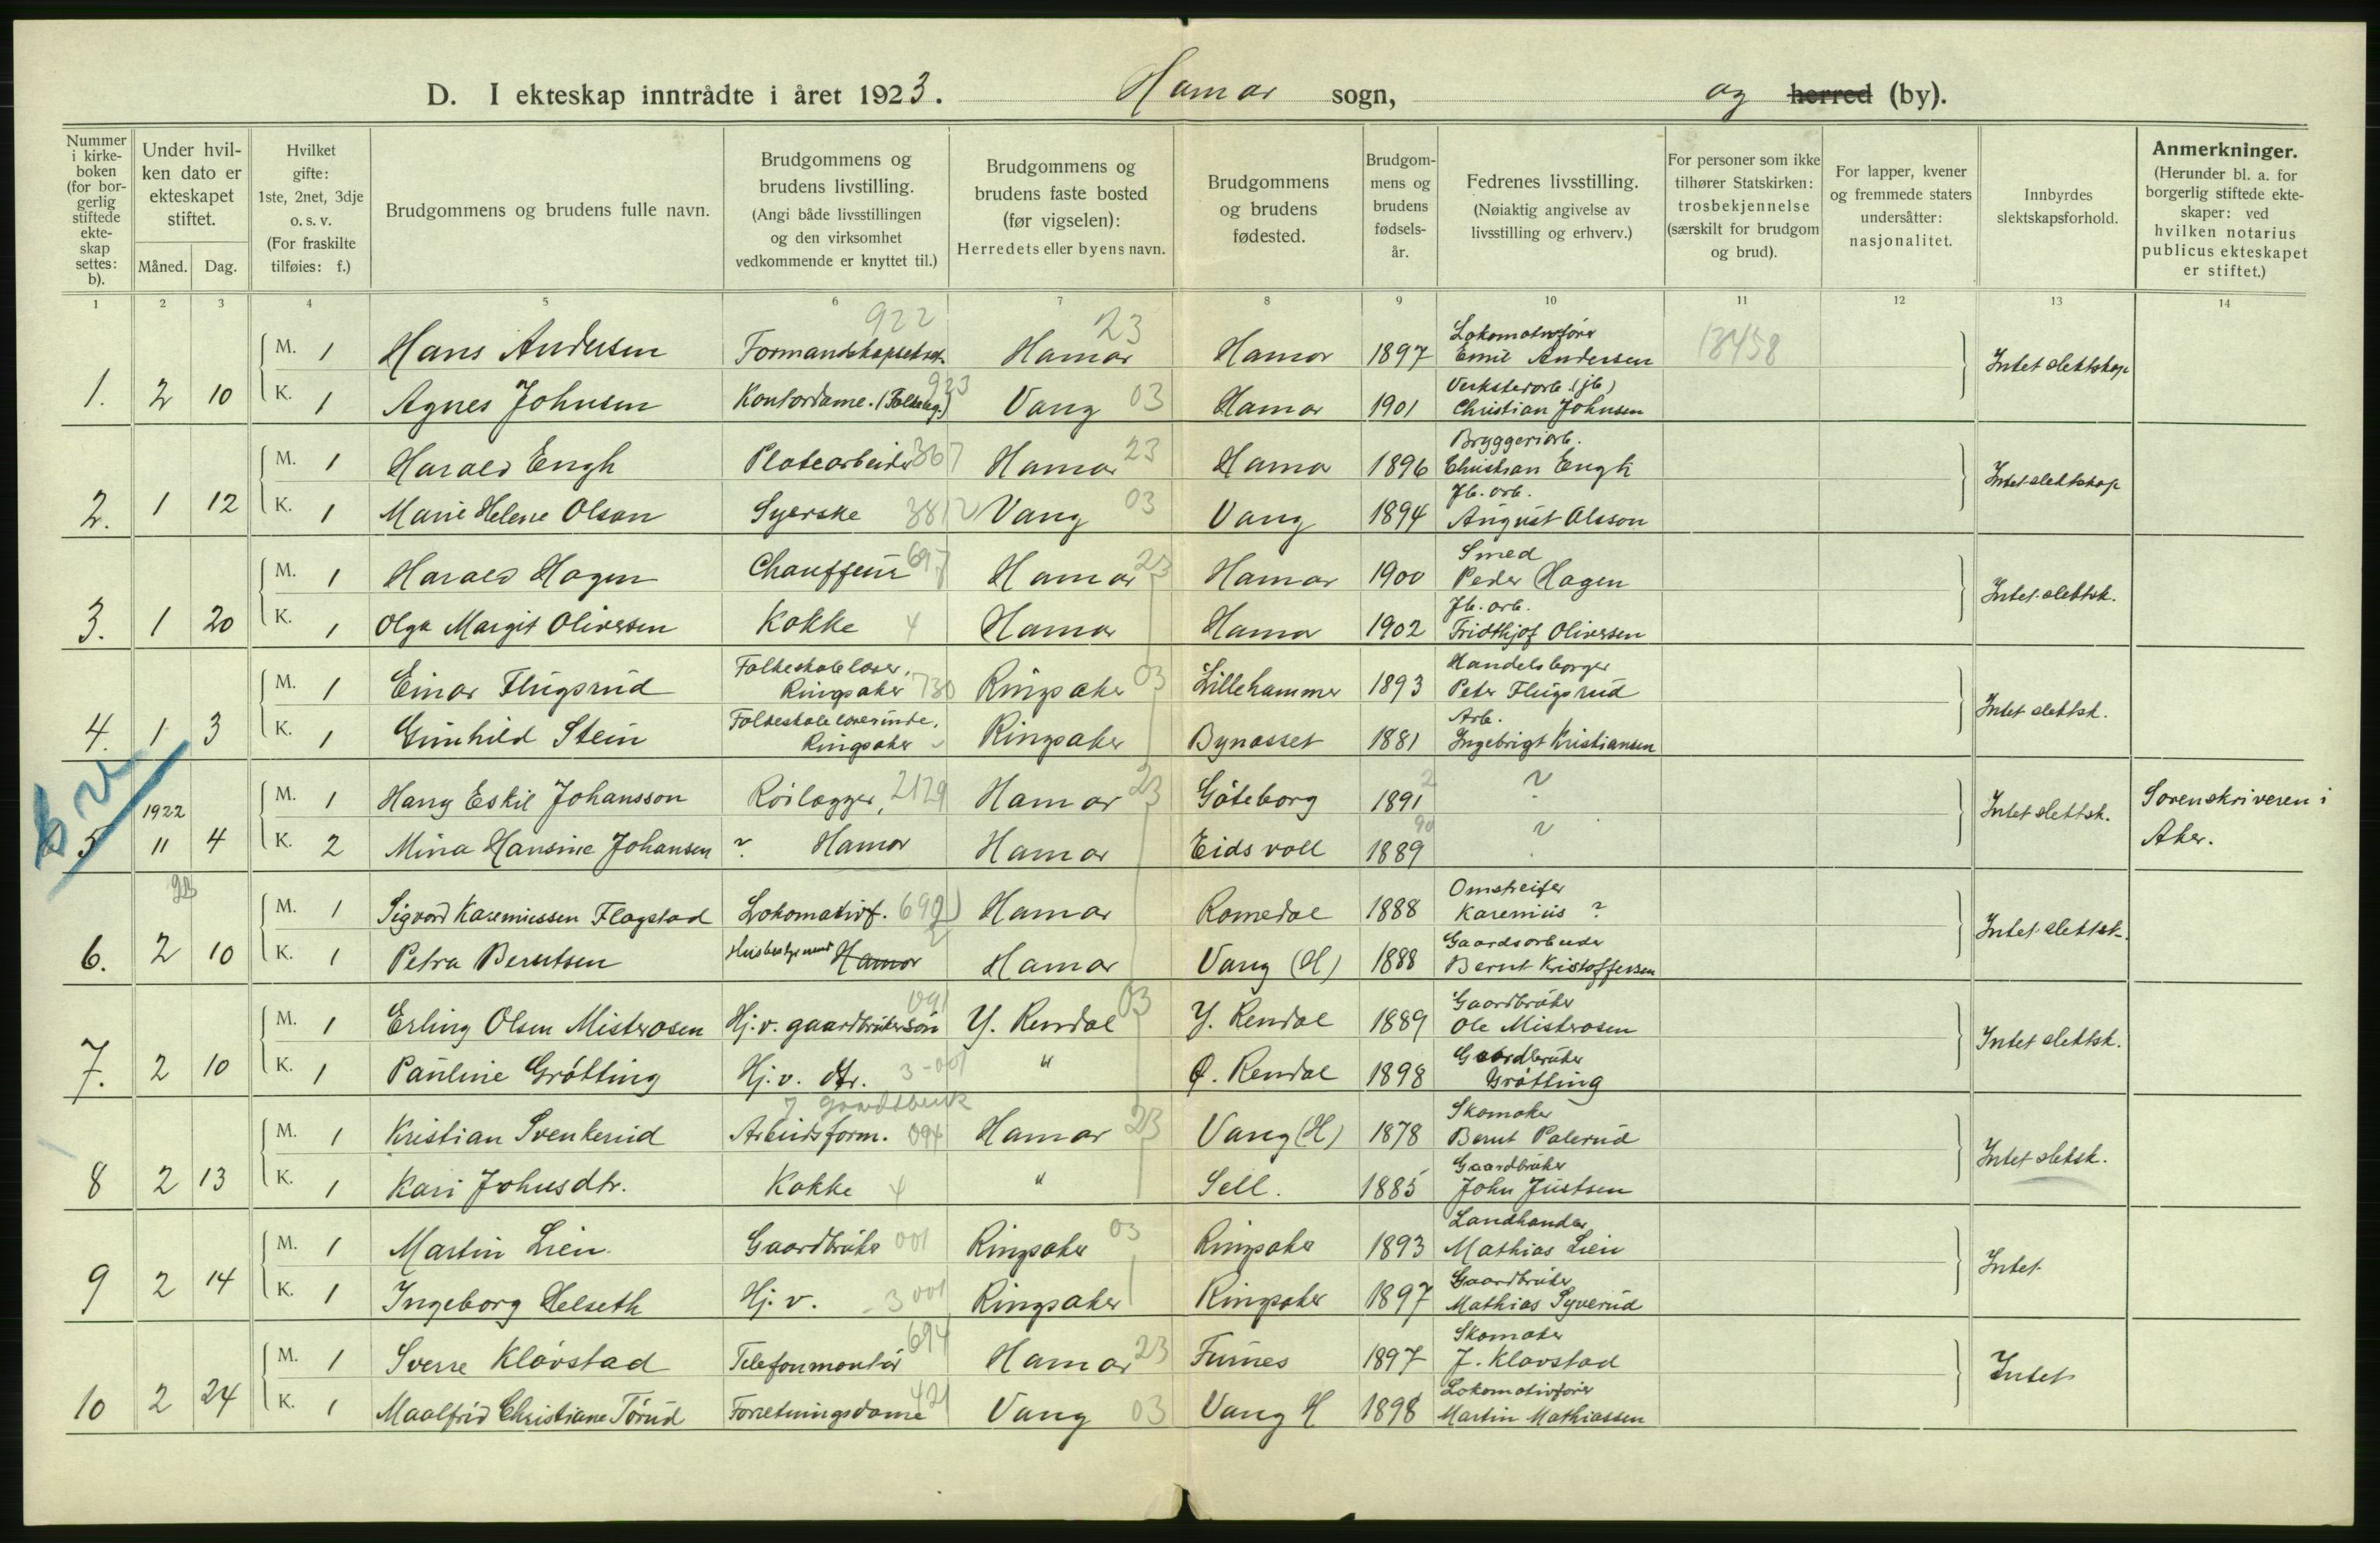 D. I ekteskap inntrådte i året 1923. Hamar sogn, og herred (by).
Nummer i kirkeboken (for borgerlig stiftede ekteskap settes: b).
Under hvilken dato er ekteskapet stiftet.
Måned. Dag.
Hvilket gifte: 1ste, 2net, 3dje o. s. v. (For fraskilte tilføies: f.)
Brudgommens og brudens fulle navn.
Brudgommens og brudens livstilling. (Angi både livsstillingen og den virksomhet vedkommende er knyttet til.)
Brudgommens og brudens faste bosted (før vigselen): Herredets eller byens navn.
Brudgommens og brudens fødested.
Brudgommens og brudens fødselsår.
Fedrenes livsstilling. (Nøiaktig angivelse av livsstilling og erhverv.)
For personer som ikke tilhører Statskirken: trosbekjennelse (særskilt for brudgom og brud).
For lapper, kvener og fremmede staters undersåtter: nasjonalitet.
Innbyrdes slektskapsforhold.
Anmerkninger. (Herunder bl. a. for borgerlig stiftede ekteskaper: ved hvilken notarius publicus ekteskapet er stiftet.)
1 2 3 4 5 6 7 8 9 10 11 12 13 14
922 23
M. 1 Hans Andersen Formandskapssekret. Hamar Hamar 1897 Lokomotivfører Emil Andersen 18458 Intet slektskap
1. 2 10 K. 1 Agnes Johnsen Kontordame. 923 Vang 03 Hamar 1901 Verkstedarb. (jb) Christian Johnsen
M. 1 Harald Engh Platearbeider 367 Hamar 23 Hamar 1896 Bryggeriarb. Christian Engh Intet slektskap
2. 1 12 K. 1 Marie Helene Olson Syerske 3812 Vang 03 Vang 1894 Jb. arb. August Olsson
M. 1 Harald Hagen Chauffeur 697 Hamar 23 Hamar 1900 Smed Peder Hagen Intet slektsk.
3. 1 20 K. 1 Olga Margit Oliversen Kokke 4 Hamar Hamar 1902 Jb. arb. Fridthjof Oliversen
M. 1 Einar Flugsrud Folkeskolelærer, Ringsaker 730 Ringsaker 03 Lillehammer 1893 Handelsborger Peter Flugsrud Intet slektsk.
4. 1 3 K. 1 Gunhild Stein Folkeskolelærerinde, Ringsaker Ringsaker Bynesset 1881 Arb. Ingebrigt Kristiansen
M. 1 Harry Eskil Johansson Rørlægger, 2129 Hamar 23 Göteborg 1891 2 ? Intet slektsk. Sorenskriveren i Aker.
5 1922 11 4 K. 2 Mina Hansine Johansen ? Hamar Hamar Eidsvoll 1889 90 ?
M. 1 Sigvard Kareniussen Flagstad Lokomotivf. 692 Hamar Romedal 1888 Omstreifer Karenius ? Intet slektsk.
6. 2 10 K. 1 Petra Berntsen Husbestyrerinde Hamar Hamar Vang (H) 1888 Gaardsarbeider Bernt Kristoffersen
M. 1 Erling Olsen Misterosen Hj. v. gaardbrukersøn 091 Y. Rendal 03 Y. Rendal 1889 Gaardbruker Ole Misterosen Intet slektsk.
7. 2 10 K. 1 Pauline Grøtting Hj. v. dtr. 3-001 " Ø. Rendal 1898 Gaardbruker Grøtting
M. 1 Kristian Svenkerud Arbeidsform. 094 Hamar 23 Vang (H) 1878 Skomaker Bernt Palerud Intet sletsk.
8 2 13 K. 1 Kari Johnsdtr. Kokke 4 " Sell. 1885 Gaardbruker John Justsen
M. 1 Martin Lien Gaardbruker 001 Ringsaker 03 Ringsaker 1893 Landhandler Mathias Lien Intet
9 2 14 K. 1 Ingeborg Helseth Hj. v. 3001 Ringsaker Ringsaker 1897 Gaardbruker Mathias Syverud
M. 1 Sverre Kløvstad Telefonmontør 694 Hamar 23 Furnes 1897 Skomaker J. Kløvstad Intet
10 2 24 K. 1 Maalfrid Christiane Tørud Forretningsdame 421 Vang 03 Vang H 1898 Lokomotivfører Martin Mathiassen